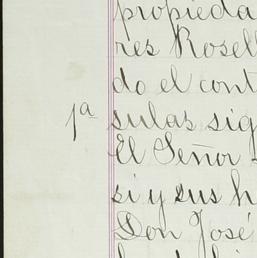 propieda
res Rosell
do el cont
1ª sulas sig
El Señor
si y sus h
Don José